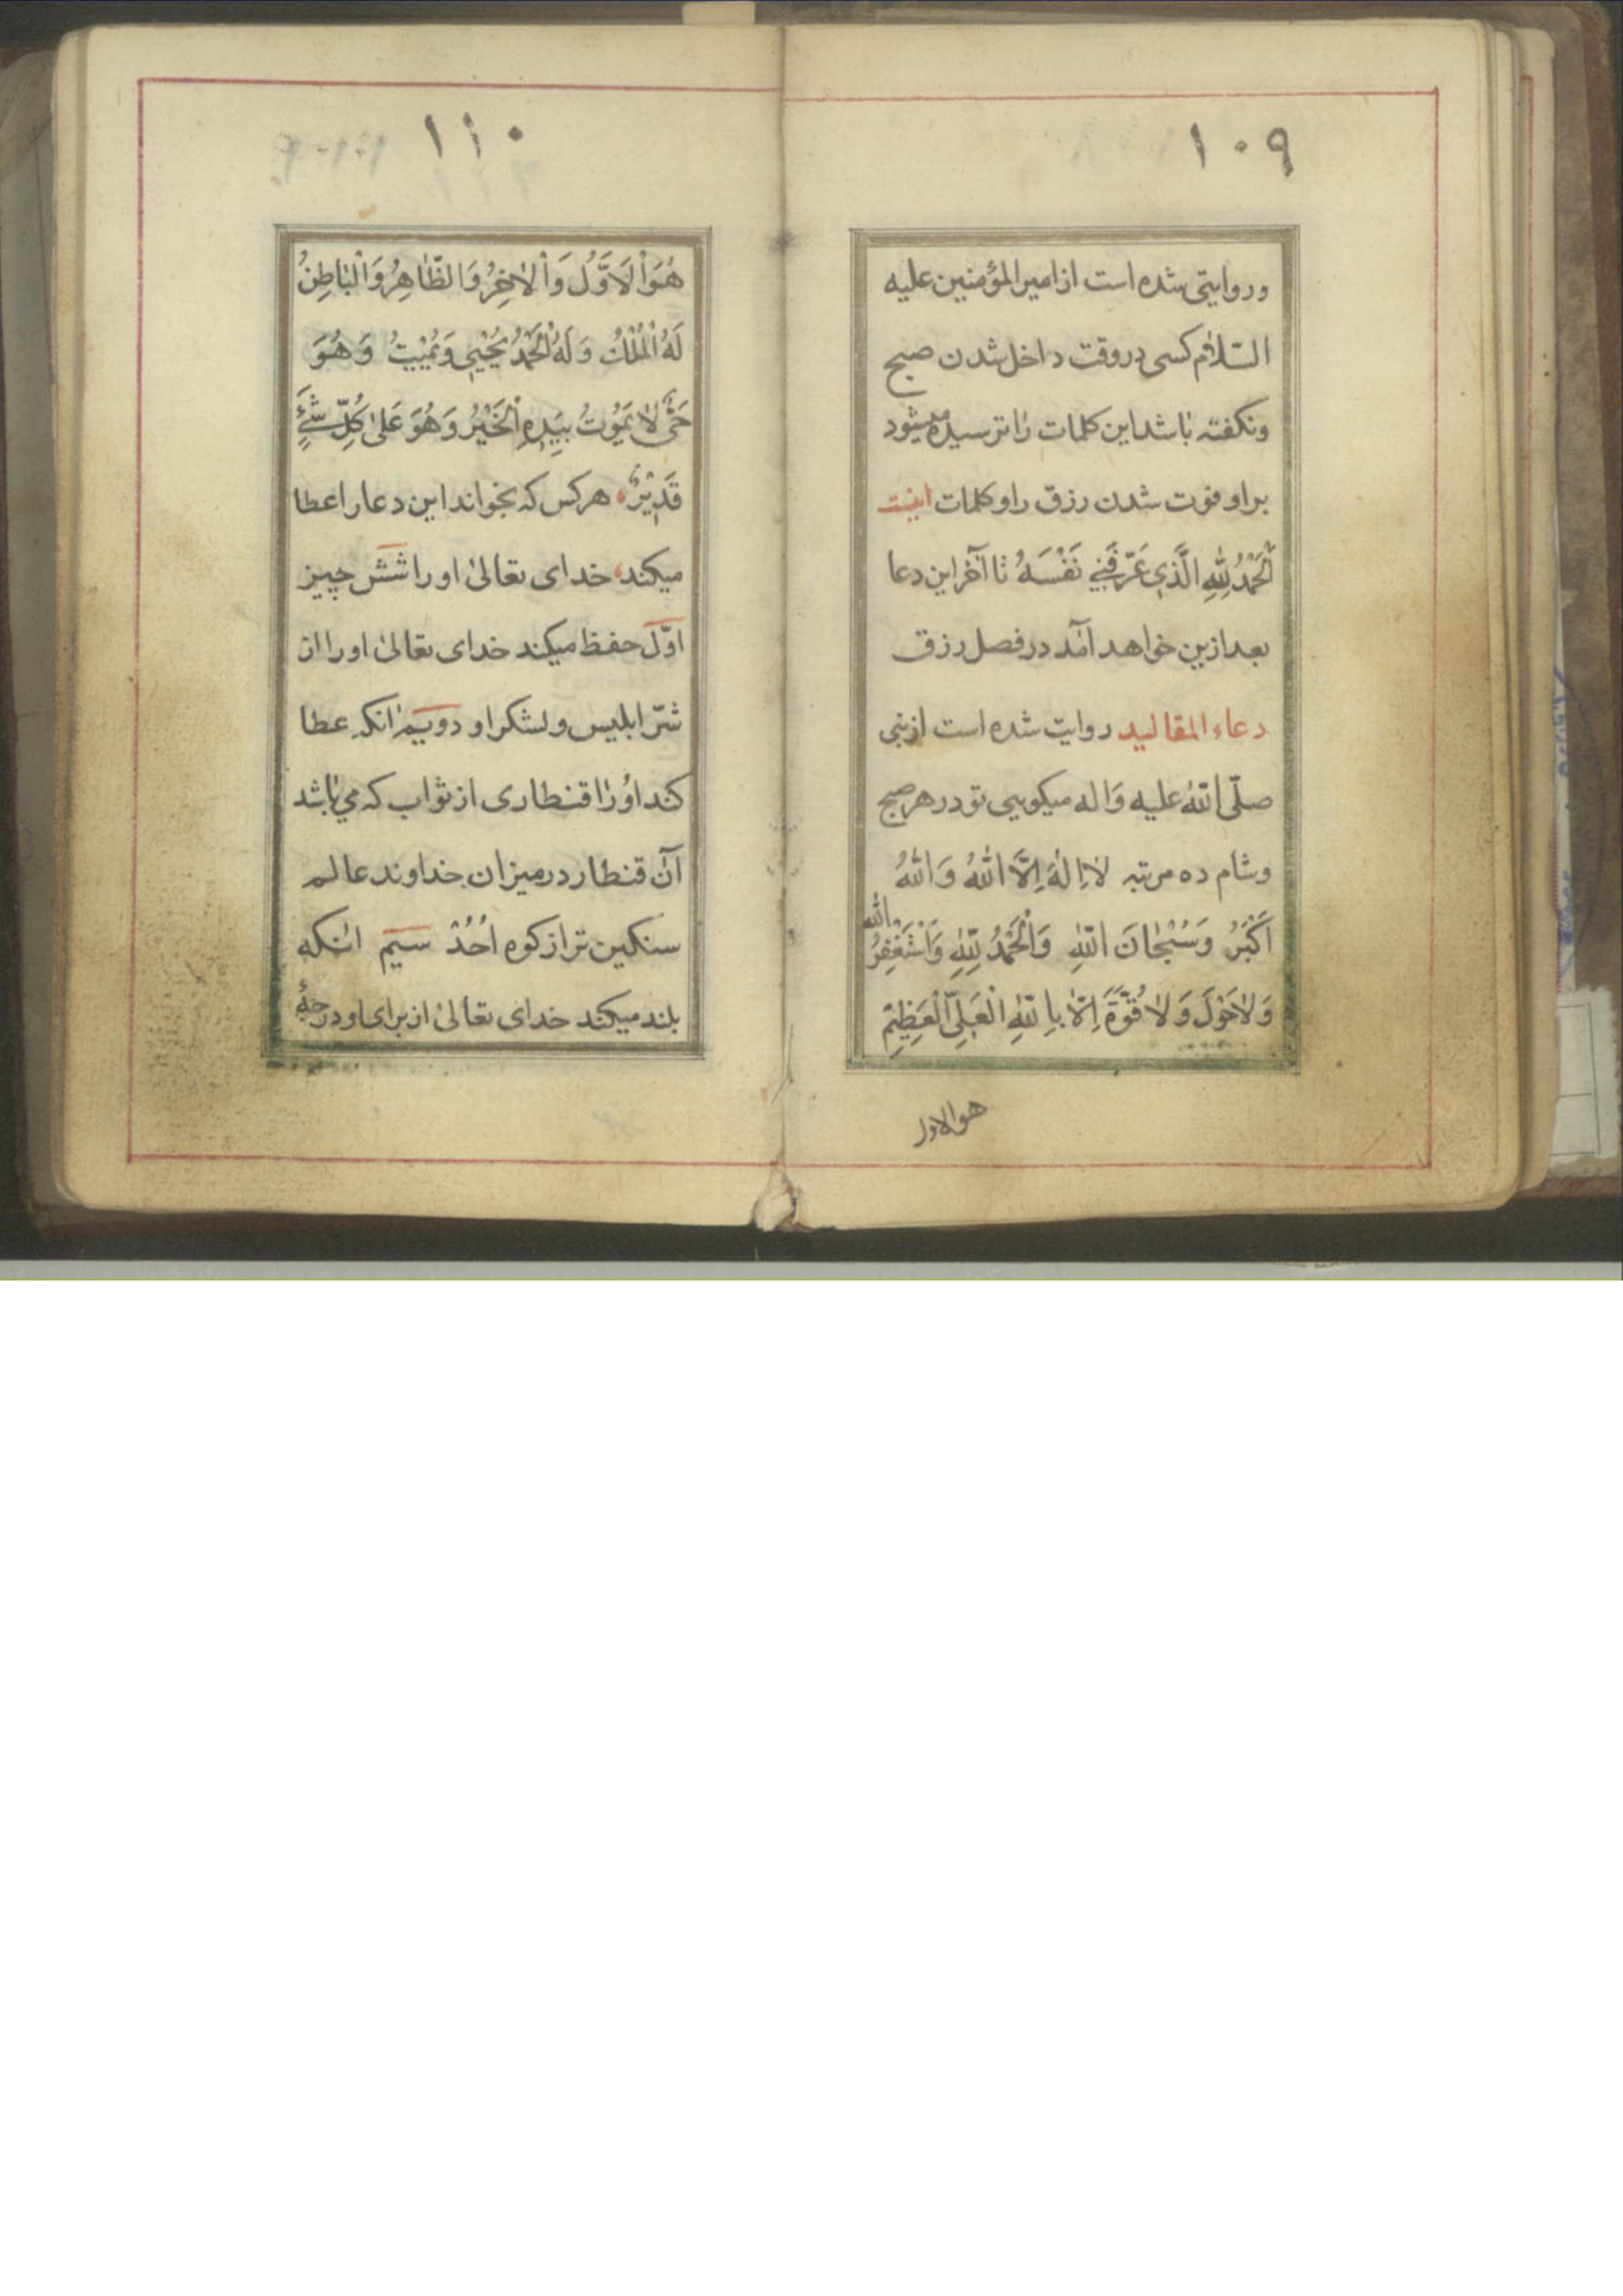 ١٠٩
وروایتی شده است از امیرالمؤمنین علیه
السّلام کسی در وقت داخل شدن صبح
ونکفته باشد این کلمات را ترسیده میشود
بر او فوت شدن رزق را و کلمات اینست
اَلْحَمْدُ لِلّٰهِ الَّذِي عَرَّفَنِي نَفْسَهُ تا آخر این دعا
بعد ازین خواهد آمد در فصل رزق
دعاء المقالید روایت شده است از نبی
صلّی اللّٰه علیه وَاله میکویی تو در هر صبح
وشام ده مرتبه لا اِلٰهَ اِلَّا اللّٰهُ وَاللّٰهُ
اَكْبَرُ وَسُبْحٰانَ اللّٰهِ وَالْحَمْدُ لِلّٰهِ وَاَسْتَغْفِرُ اللّٰه
وَلاٰحَوْلَ وَلاٰ قُوَّةَ اِلّاٰ بِاللّٰهِ الْعَلِيِّ الْعَظِيْمِ
هوالاول
١١٠
هُوَ الْاَوَّلُ وَالْاٰخِرُ وَالظّٰاهِرُ وَالْبٰاطِنُ
لَهُ الْمُلْكُ وَلَهُ الْحَمْدُ يُحْيِي وَيُمْيِتُ وَهُوَ
حَيٌّ لاٰ يَمُوْتُ بِيَدِهِ الْخَيْرُ وَهُوَ عَلىٰ كُلِّ شَئٍ
قَدِيْرٌ هر کس که بخواند این دعا را عطا
میکند خدای تعالیٰ او را شش چیز
اوّل حفظ میکند خدای تعالیٰ او را از
شرّ ابلیس و لشکر او دویم انکه عطا
کند اوُرا قنطاری از ثواب که می باشد
آن قنطار در میزان خداوند عالم
سنکین تر از کوه اُحُدْ سیم انکه
بلند میکند خدای تعالیٰ از برای او درجهٔ